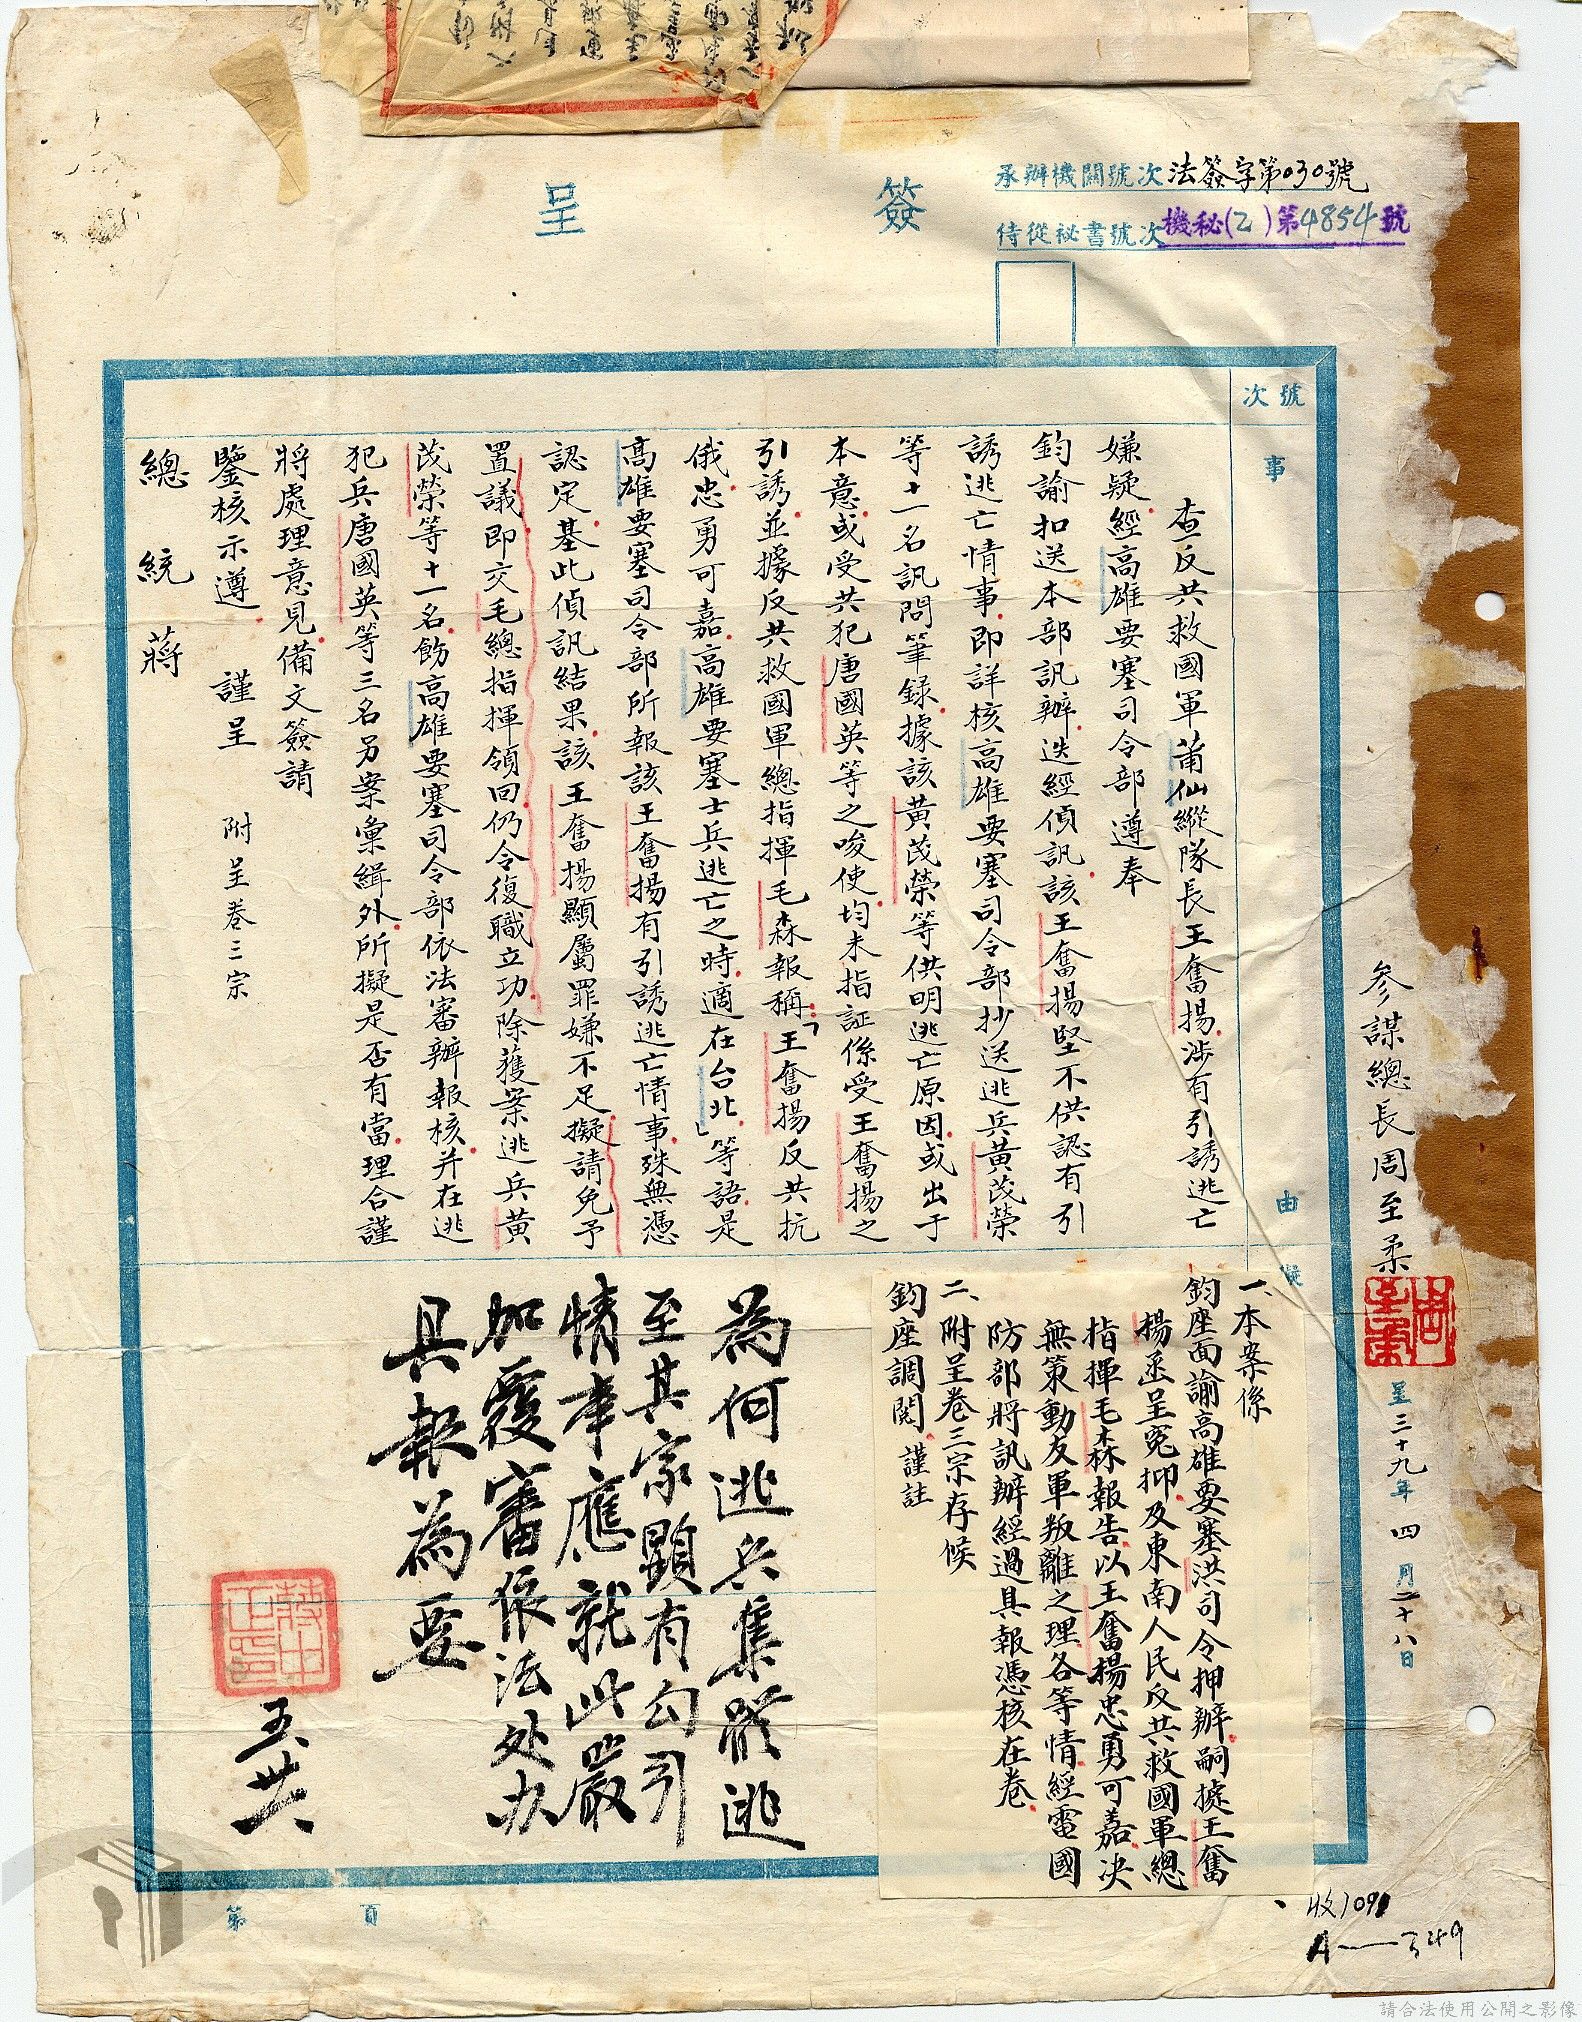 簽呈
承辦機關號次 法簽字第030號
侍從祕書號次 機秘(乙)第4854號
參謀總長周至柔
呈三十九年四月二十八日
號次
事由
擬
查反共救國軍莆仙縱隊長王奮揚涉有引誘逃亡
嫌疑經高雄要塞司令部遵奉
鈞諭扣送本部訊辦迭經偵訊該王奮揚堅不供認有引
誘逃亡情事即詳核高雄要塞司令部抄送逃兵黃茂榮
等十一名訊問筆錄據該黃茂榮等供明逃亡原因或出于
本意或受共犯唐國英等之唆使均未指証係受王奮揚之
引誘並據反共救國軍總指揮毛森報稱「王奮揚反共抗
俄忠勇可嘉高雄要塞士兵逃亡之時適在台北」等語是
高雄要塞司令部所報該王奮揚有引誘逃亡情事殊無憑
認定基此偵訊結果該王奮揚顯屬罪嫌不足擬請免予
置議即交毛總指揮領回仍令復職立功除獲案逃兵黃
茂榮等十一名飭高雄要塞司令部依法審辦報核并在逃
犯兵唐國英等三名另案彙緝外所擬是否有當理合謹
將處理意見備文簽請
鑒核示遵 謹呈 附呈卷三宗
總統 蔣
一、本案係
鈞座面諭高雄要塞洪司令押辦嗣據王奮
揚丞呈冤抑及東南人民反共救國軍總
指揮毛森報告以王奮揚忠勇可嘉決
無策動友軍叛離之理各等情經電國
防部將訊辦經過具報憑核在卷
二、附呈卷三宗存候
鈞座調閱 謹註
為何逃兵集體逃
至其家顯有勾引
情事應就此嚴
加覆審依法处办
具報為要
蔣中正印
五廿六
第 頁
收1091
A——349
請合法使用公開之影像